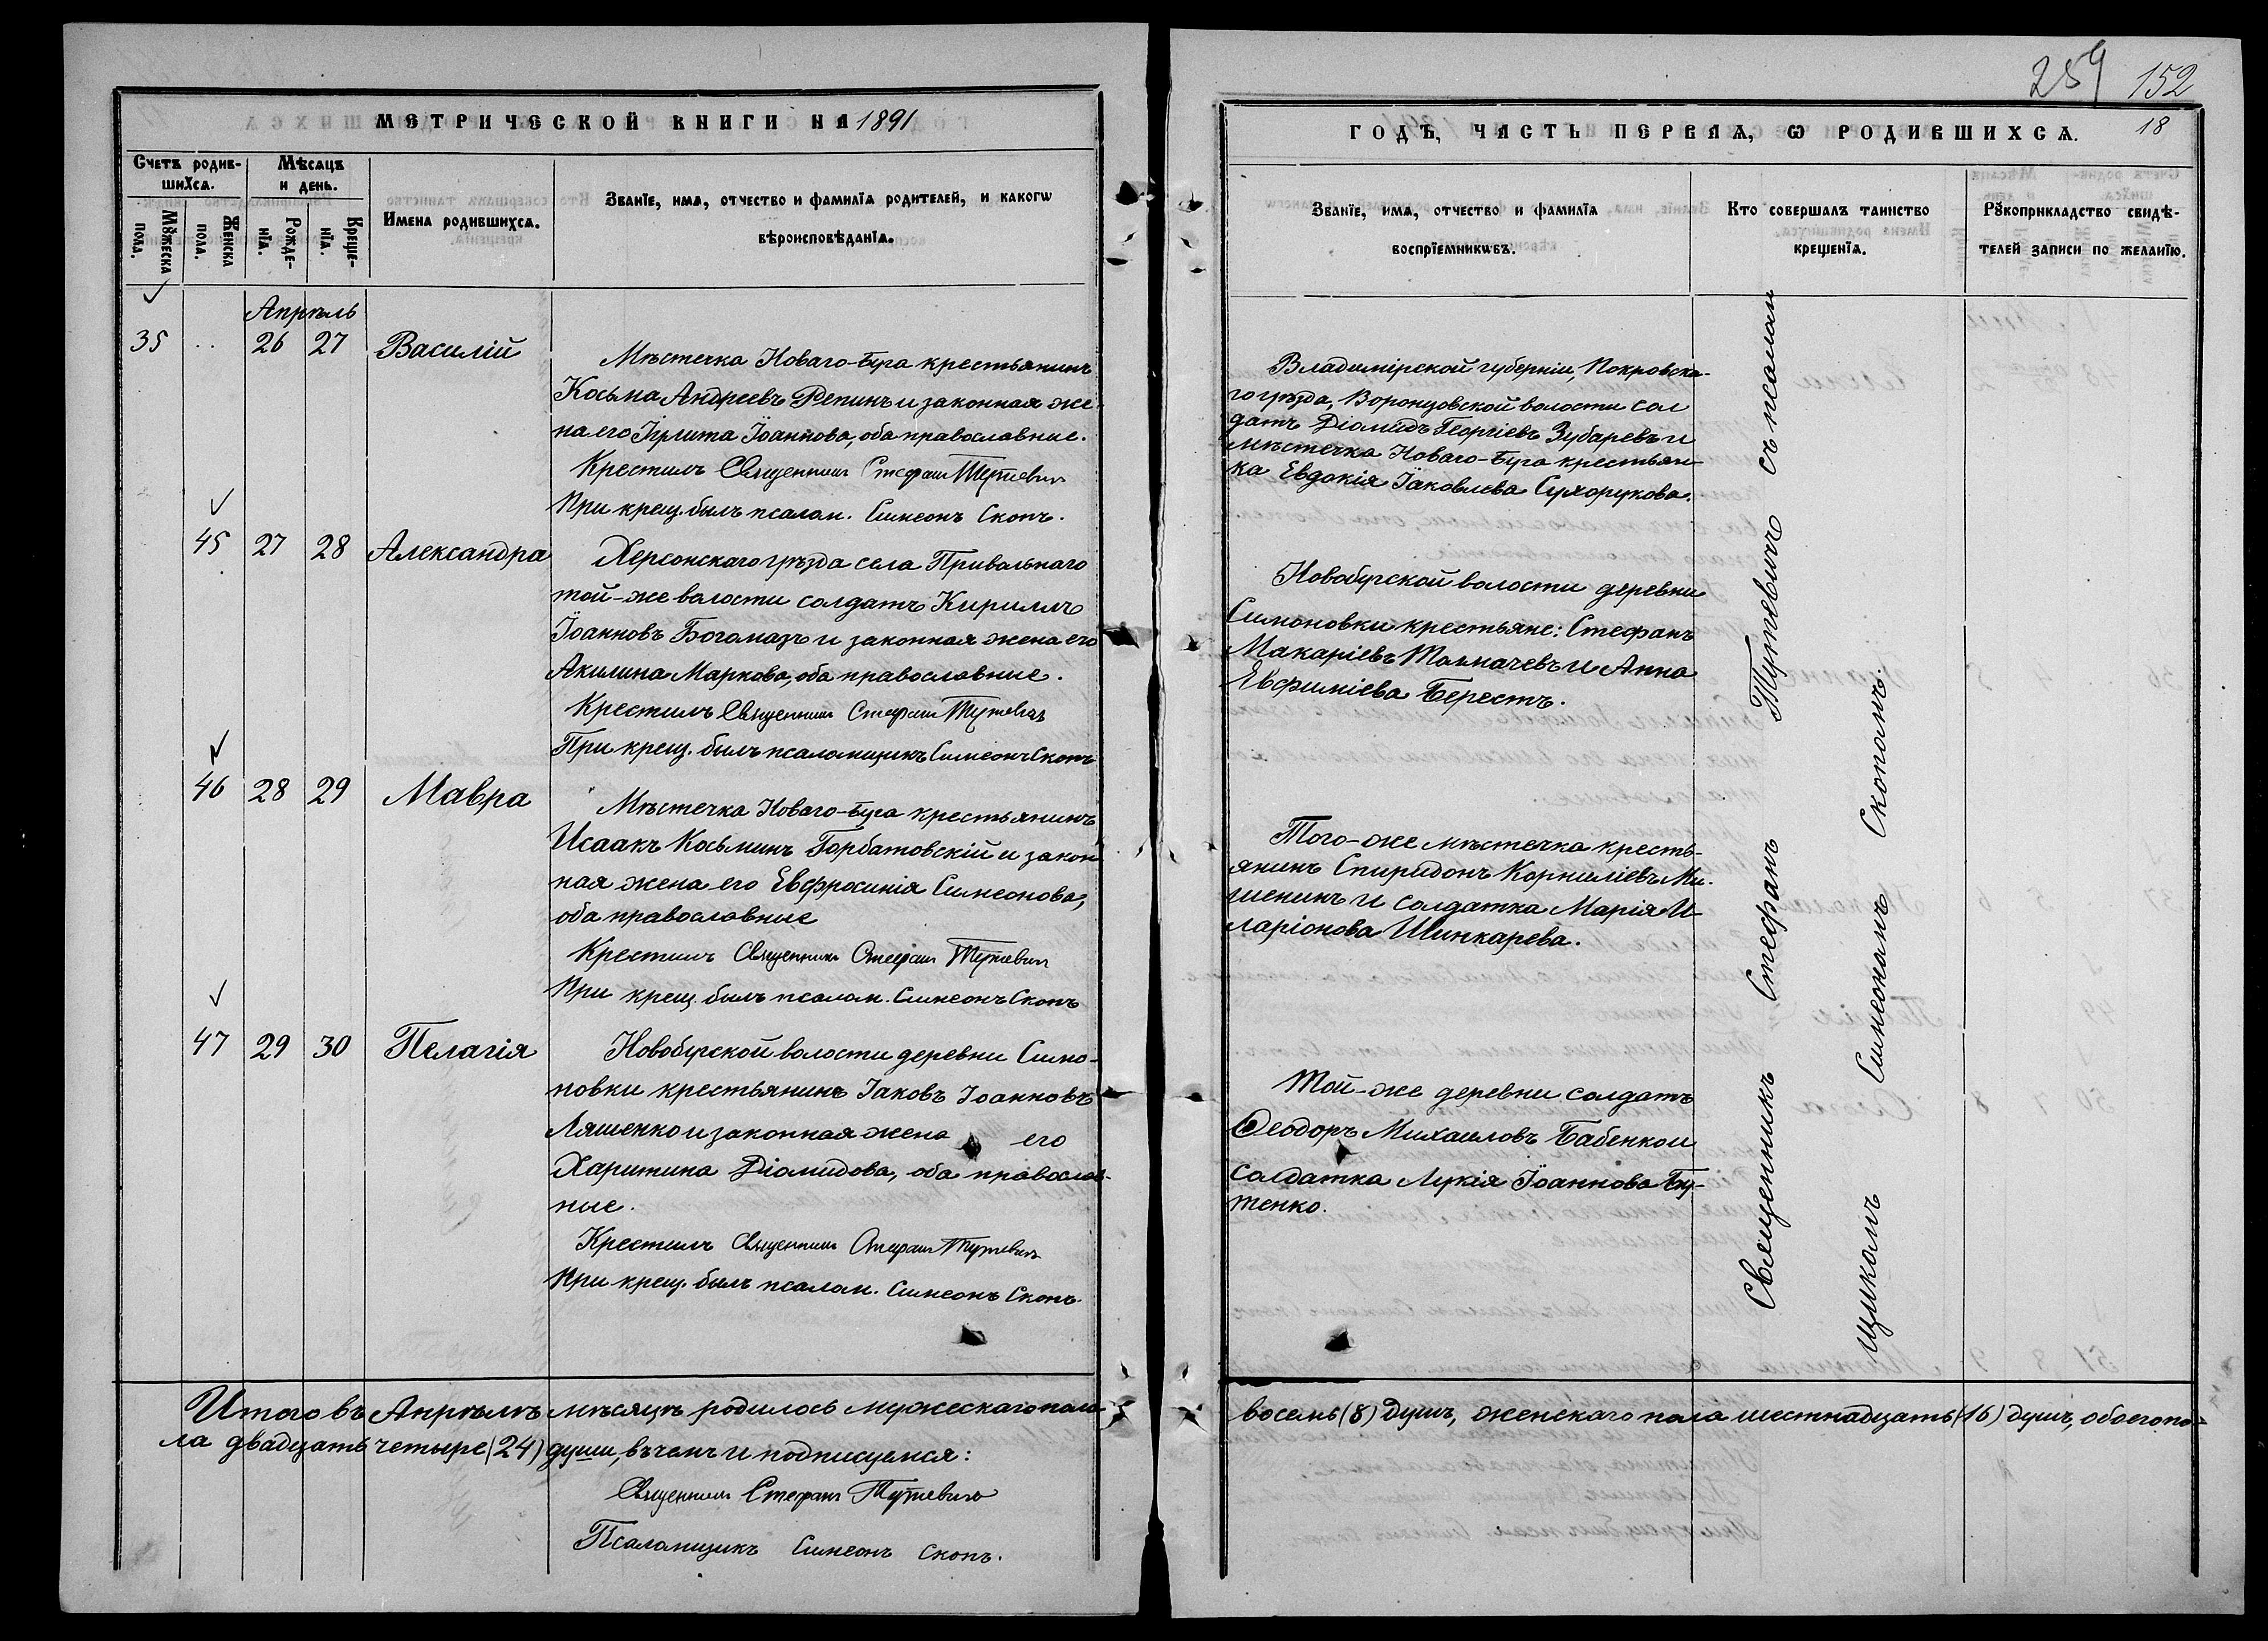 259 152
18
МЕТРИЧЕСКОЙ КНИГИ НА 1891
ГОДЪ, ЧАСТЬ ПЕРВАЯ, Ѡ РОДИВШИХСѦ.
Счетъ родив-
шихсѧ.
Мѣсѧцъ
и день.
Мꙋжеска
пола.
Женска
пола.
Рожде-
нїѧ.
Креще-
нїѧ.
Имена родившихсѧ.
Званїе, имѧ, отчество и фамилїѧ родителей, и какогѡ
вѣроисповѣданїѧ.
Званїе, имѧ, отчество и фамилїѧ
воспрїемникѡвъ.
Кто совершалъ таинство
крещенїѧ.
Рꙋкоприкладство свидѣ-
телей записи по желанїю.
Апрѣль
35 .. 26 27 Василій
Мѣстечка Новаго-Буга крестьянинъ
Косьма Андреевъ Репинъ и законная же-
на его Іулита Іоаннова, оба православные.
Крестилъ Священникъ Стефанъ Тутевичъ
При крещ. былъ псалом. Симеонъ Скопъ.
Владимірской губерніи, Покровска-
го уѣзда, Воронцовской волости сол
датъ Діомидъ Георгіевъ Зубаревъ и
мѣстечка Новаго-Буга крестьян-
ка Евдокія Іаковлева Сухорукова.
45 27 28 Александра
Херсонскаго уѣзда села Привольнаго
той-же волости солдатъ Кириллъ
Іоанновъ Богомазъ и законная жена его
Акилина Маркова, оба православные.
Крестилъ Священникъ Стефанъ Тутевичъ
При крещ. былъ псаломщикъ Симеонъ Скопъ
Новобугской волости деревни
Симоновки крестьяне: Стефанъ
Макаріевъ Толмачевъ и Анна
Евфиміева Берестъ.
46 28 29 Мавра
Мѣстечка Новаго-Буга крестьянинъ
Исаакъ Косьминъ Горбатовскій и закон
ная жена его Евфросинія Симеонова,
оба православные
Крестилъ Священникъ Стефанъ Тутевичъ
При крещ. былъ псалом. Симеонъ Скопъ
Того-же мѣстечка кресть-
янинъ Спиридонъ Корниліевъ Ми-
шенинъ и солдатка Марія И-
ларіонова Шинкарева.
47 29 30 Пелагія
Новобугской волости деревни Симо-
новки крестьянинъ Іаковъ Іоанновъ
Ляшенко и законная жена его
Харитина Діомидова, оба православ-
ные.
Крестилъ Священникъ Стефанъ Тутевичъ
При крещ. былъ псалом. Симеонъ Скопъ.
Той-же деревни солдатъ
Ѳеодоръ Михаиловъ Бабенко и
солдатка Лукія Іоаннова Бу-
тенко.
Священникъ Стефанъ Тутевичъ съ псалом
щикомъ Симеономъ Скопомъ.
Итого въ Апрѣлѣ мѣсяцѣ родилось мужескаго пола восемь (8) душъ, женскаго пола шестнадцать (16) душъ, обоего по-
ла двадцать четыре (24) души, въ чемъ и подписуемся:
Священникъ Стефанъ Тутевичъ
Псаломщикъ Симеонъ Скопъ.